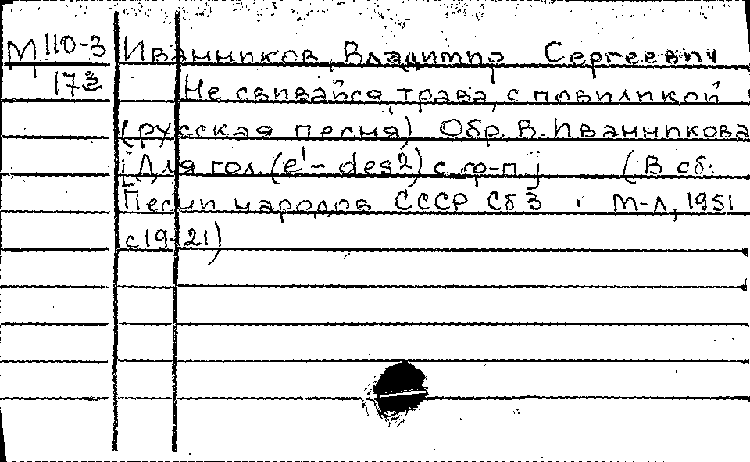 М 110-3 Иванников, Владимир Сергеевич
173 Не свивайся, трава, с повиликой
(русская песня) Обр. В. Иванникова
[Для гол. (e¹ – des²) с ф-п.] (В сб:
Песни народов СССР Сб 3 М-Л, 1951
с 19-21)